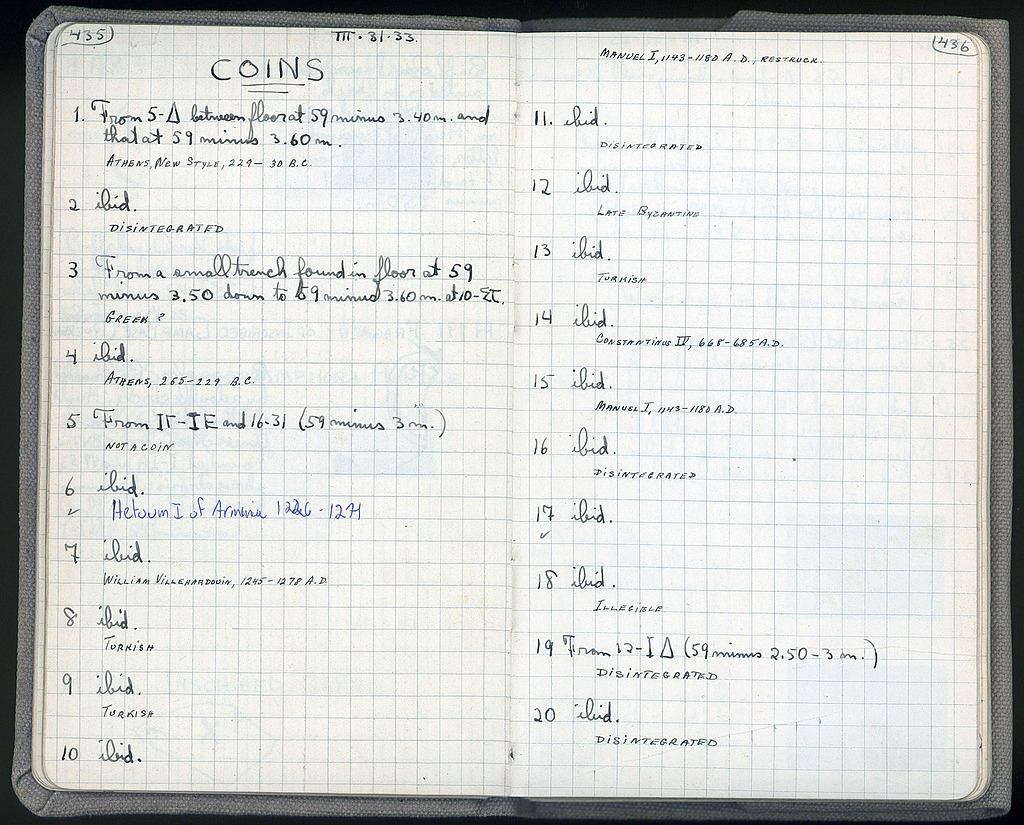 435
III · 31 · 33.
COINS
1. From 5-Δ between floor at 59 minus 3.40 m. and
that at 59 minus 3.60 m.
ATHENS, NEW STYLE, 229 – 30 B.C.
2 ibid.
DISINTEGRATED
3 From a small trench found in floor at 59
minus 3.50 down to 59 minus 3.60 m. at 10-ΣΤ.
GREEK ?
4 ibid.
ATHENS, 265-229 B.C.
5 From ΙΓ-ΙΕ and 16-31 (59 minus 3 m.)
NOT A COIN
6 ibid.
✓ Hetoum I of Armenia 1226 - 1271
7 ibid.
WILLIAM VILLEHARDOUIN, 1245-1278 A.D.
8 ibid.
TURKISH
9 ibid.
TURKISH
10 ibid.
436
MANUEL I, 1143-1180 A.D., RESTRUCK.
11. ibid.
DISINTEGRATED
12 ibid.
LATE BYZANTINE
13 ibid.
TURKISH
14 ibid.
CONSTANTINUS IV, 668-685 A.D.
15 ibid.
MANUEL I, 1143-1180 A.D.
16 ibid.
DISINTEGRATED
17 ibid.
✓
18 ibid.
ILLEGIBLE
19 From 12-ΙΔ (59 minus 2.50-3 m.)
DISINTEGRATED
20 ibid.
DISINTEGRATED